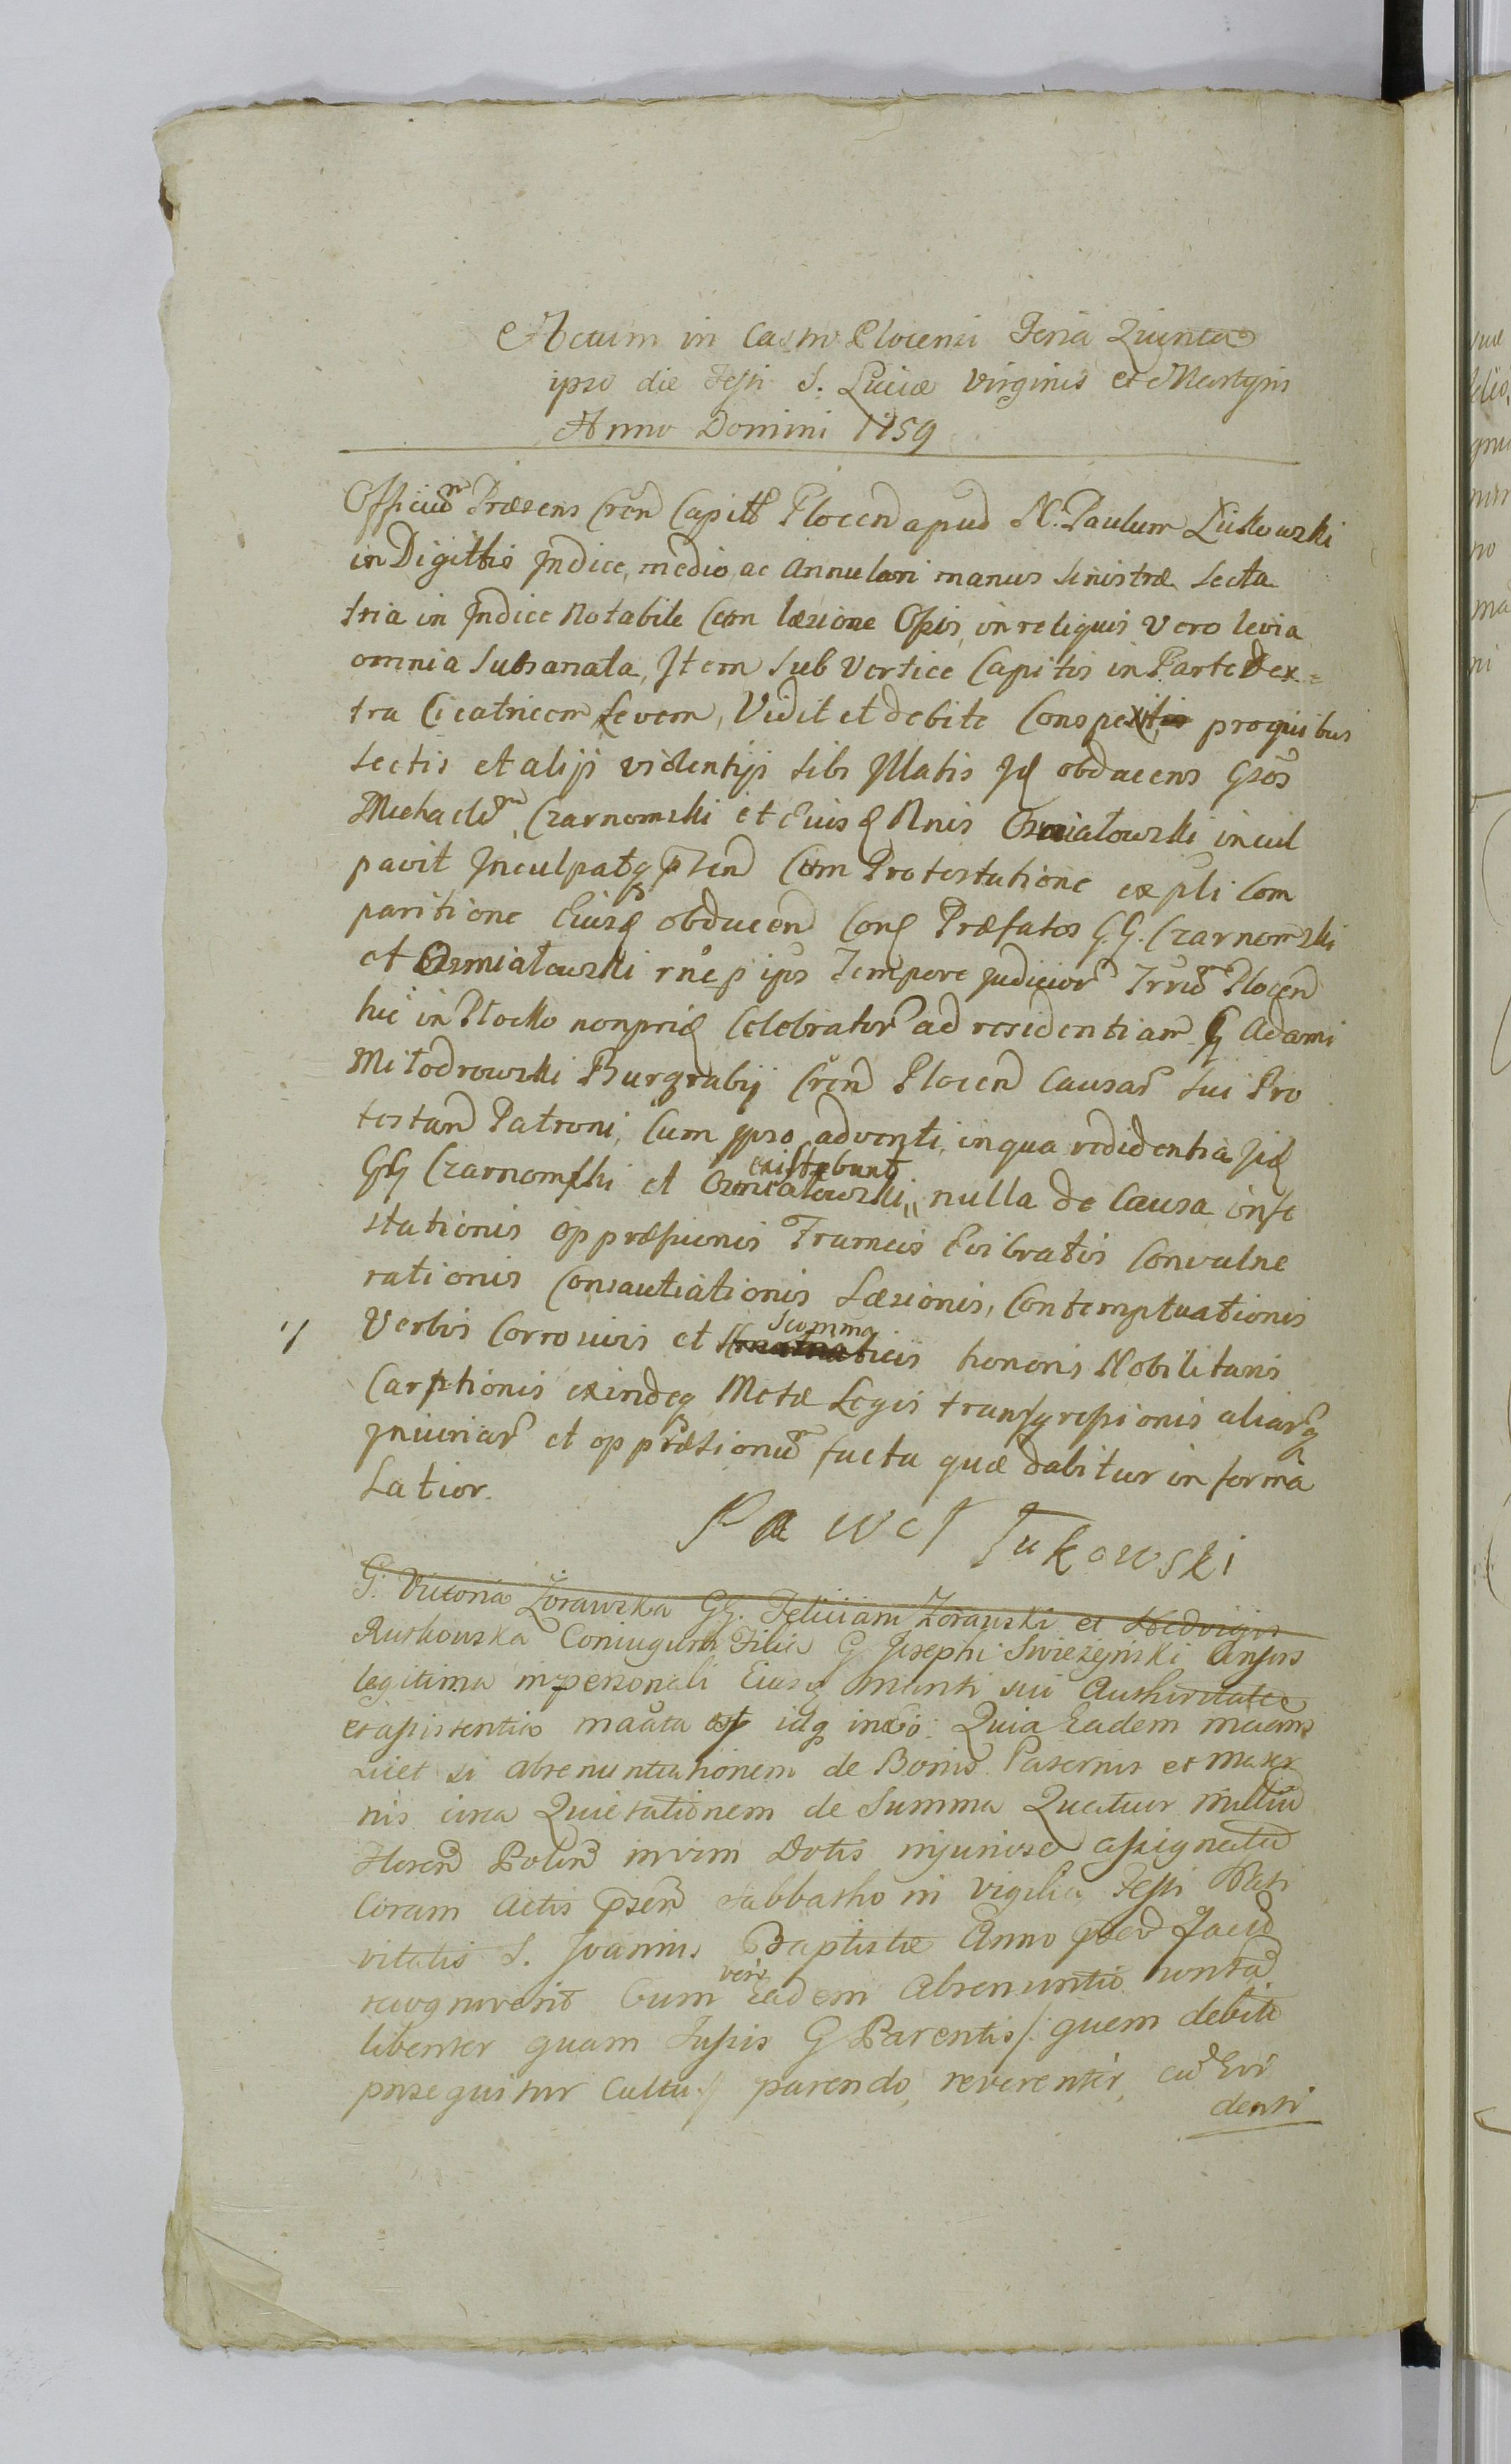 Actum in Castro Plocensi Feria Quinta
ipso die Festi S. Luciæ Virginis et Martyris
Anno Domini 1759
Officiu Præsens Cren Capitl Plocen apud N. Paulum Lukowski
in Digittis Jndice, medio, ac Annulari manus sinistræ secta
tria in Jndice Notabile Cum læsione Ossis, in reliquis Vero levia
omnia Subsanata, Jtem sub Vertice Capitis in Parte dex=
tra Cicatricem Levem, Vidit et debite Conspexit, pro quibus
sectis et alijs violentijs sibi Jllatis Jd obducens Gsos
Michaele Czarnomski et Eius Rnis Osmiałowski incul
pavit Jnculpatq Psen Cum Protestatione ex pli Com
paritione Eiusq obducen Con Præfatos GG. Czarnomski
et Osmiałowski ip Tempore Judicior Plocen
hic in Plocko non priq Celebrator ad residentiam G Adami
Miłodrowski Burgrabij Cren Plocen Causar sui Pro
testan Patroni, Cum ipso adventi, in qua redidentia Jid
GG Czarnomski et Osmiałowski existebant nulla de Causa infe
stationis oppræssionis Frameis Evibratis Convulne
rationis Consautiationis Læsionis, Contemptuationis
Verbis Corrosivis et Scommaticis honoris Nobilitaris
Carptionis exindeq Metæ Legis transgressionis aliarq
Jniuriar et oppræssionu facta quæ dabitur in forma
Latior.
Paweł Łukowski
G. Victoria Zorawska GG. Feliciani Zorawski et Hedvigis
Rutkowska Coniugum Filia G Josephi Swiezynski Consors
legitima in personali Eiusq mariti sui Authoritate
et assistentia idq Quia Eadem
Licet si abrenuntiationem de Bonis Paternis et Mater
nis circa Quietationem de Summa Quatuor milliu
Floren Polon in vim Dotis injuriose assignata
Coram Actis Psen Sabbatho in Vigilia Festi Nati
vitatis S. Joannis Baptistæ Anno
recognoverit Cum vero Eadem Abrenuntio non ta
libenter quam Jussis G Parentis /: quem debite
prosequitur Cultu :/ parendo, reverenter, cu Evi
denti